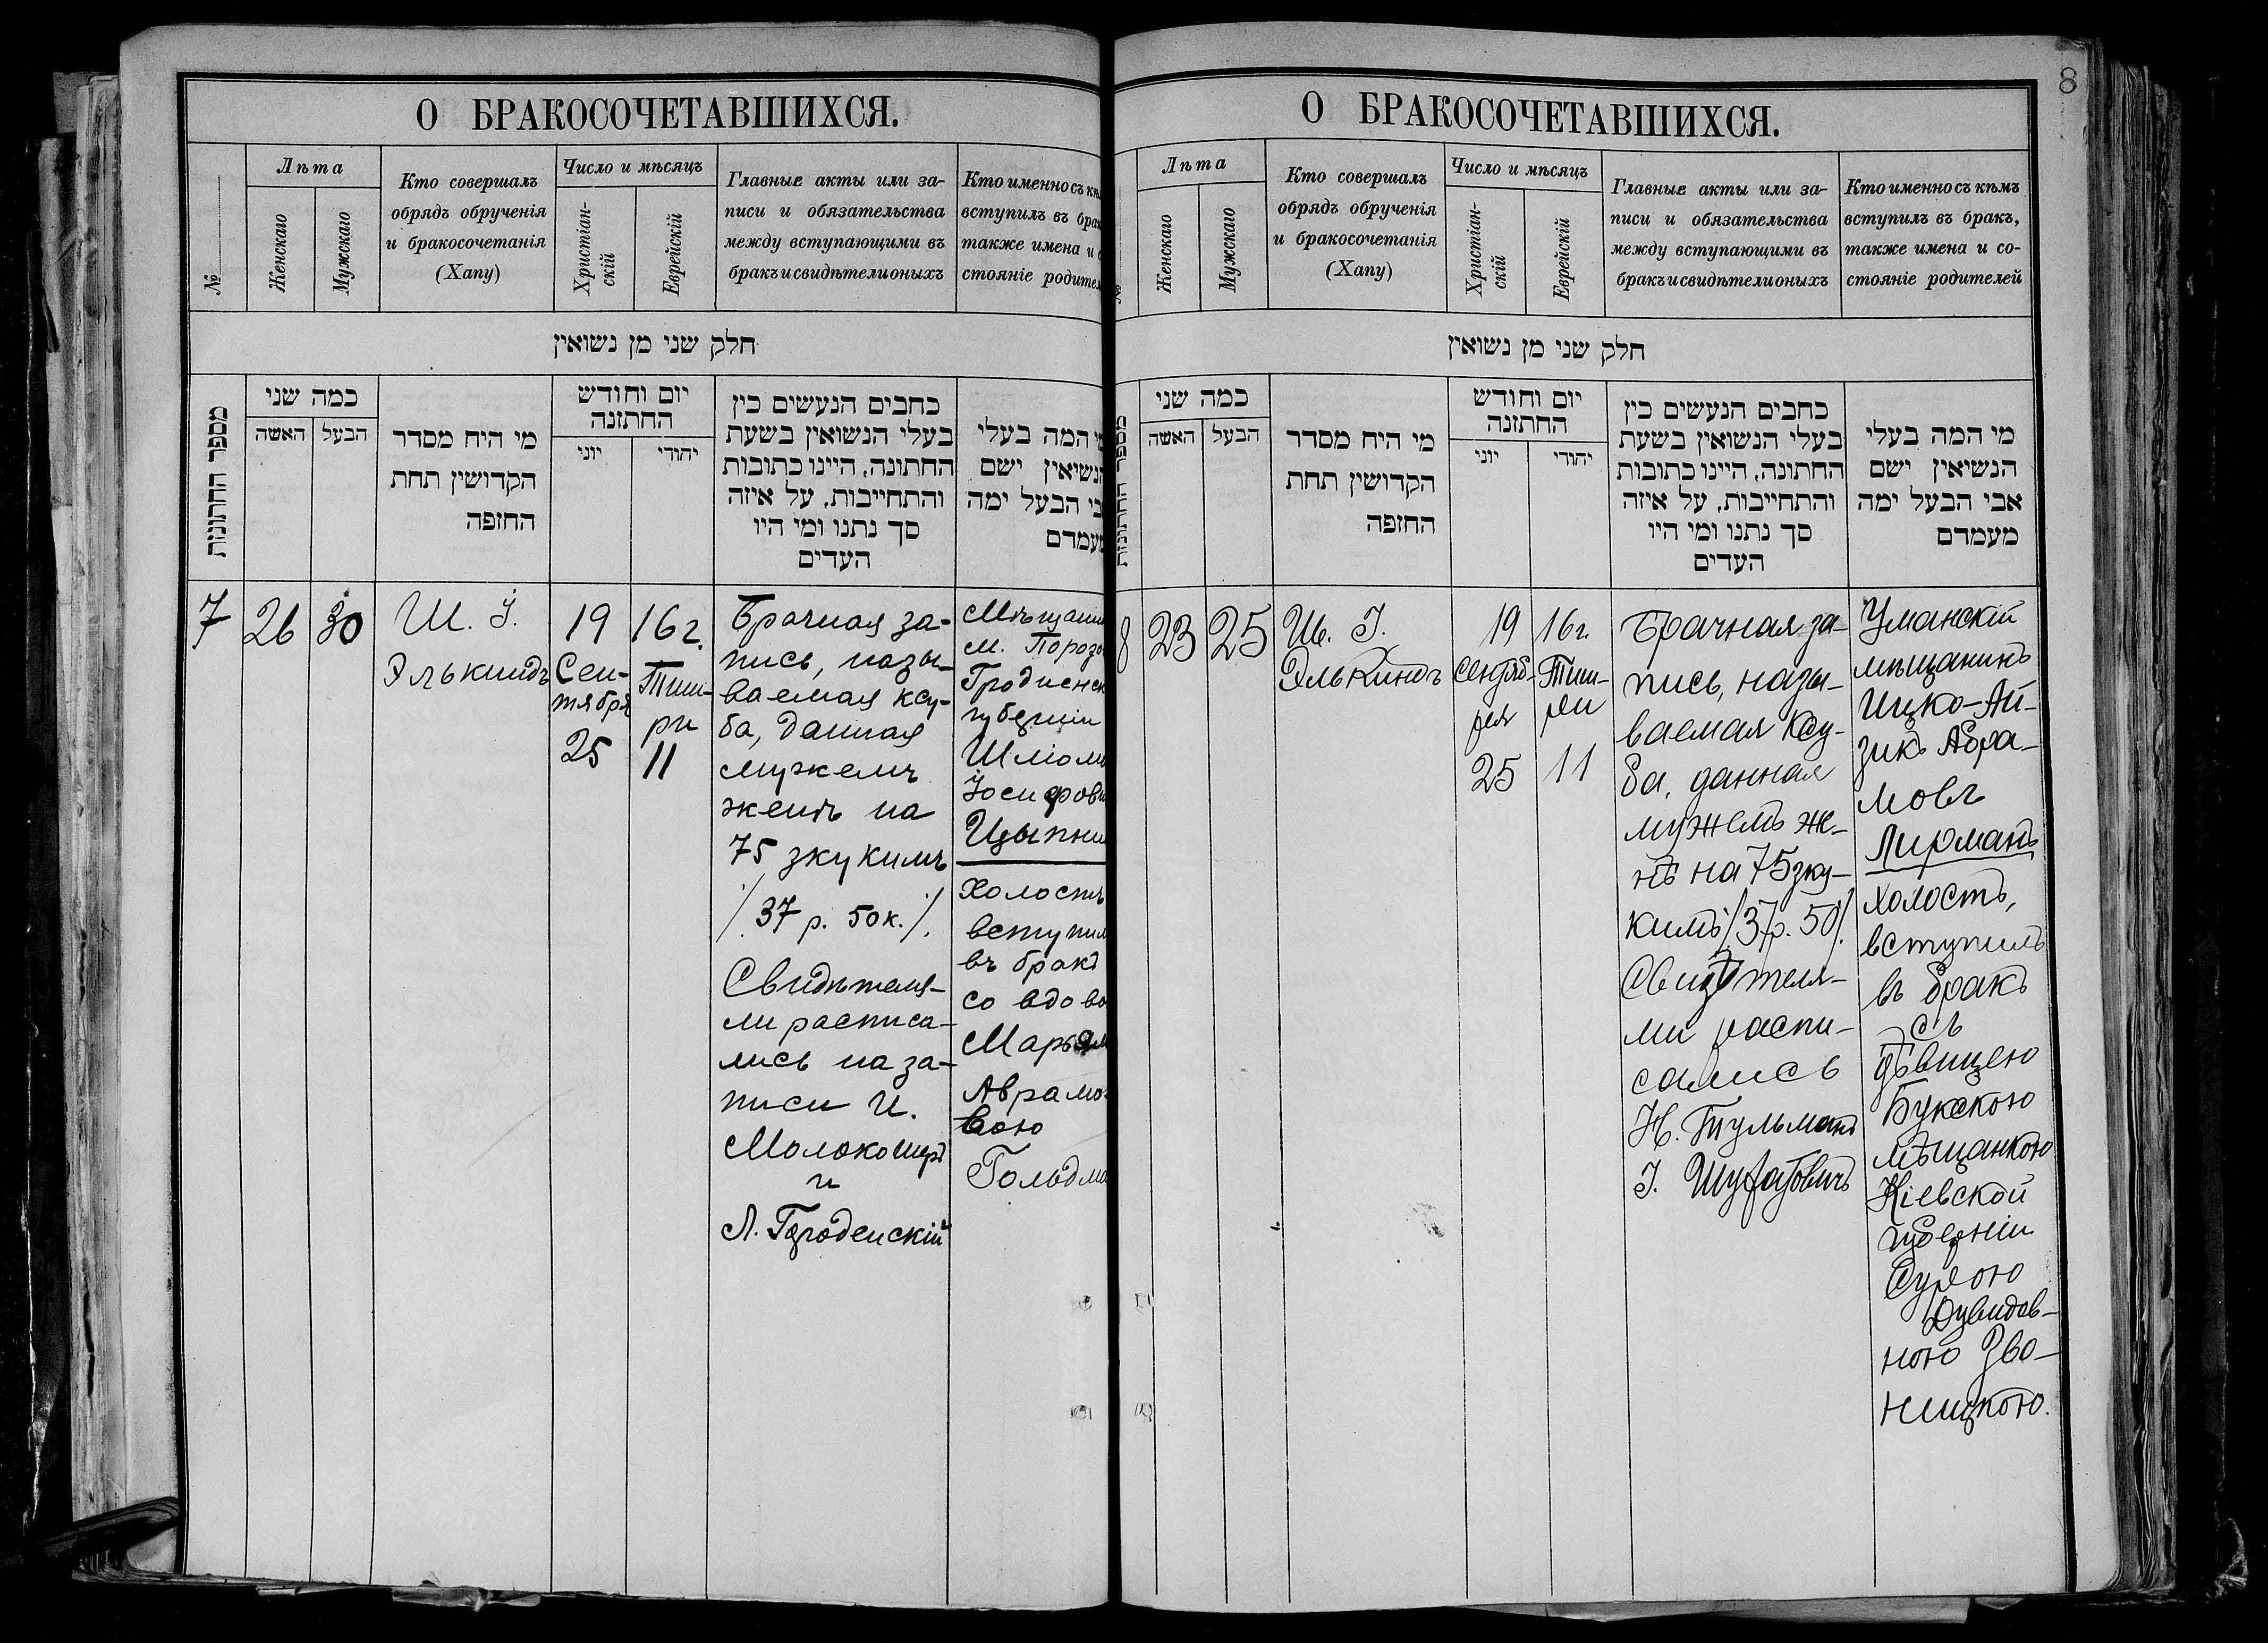 О БРАКОСОЧЕТАВШИХСЯ.
№
Лѣта
Женскаго
Мужскаго
Кто совершалъ
обрядъ обрученія
и бракосочетанія
(Хапу)
Число и мѣсяцъ
Христіан-
скій
Еврейскій
Главные акты или за-
писи и обязательства
между вступающими въ
бракъ и свидѣтели оныхъ
Кто именно съ кѣ
вступилъ въ брак
также имена и с
стояніе родител
חלק שני מן נשואין
מספר החתונות
כמה שני
האשה
הבעל
מי היח מסדר
הקדושין תחת
החופה
יום וחודש
החתונה
יוני
יהודי
כחבים הנעשים כין
בעלי הנשואין בשעת
החתונה, היינו כתובות
והתחייבות, על איזה
סך נתנו ומי היו
העדים
י המה בעלי
הנשיאין ישם
בי הבעל ימה
מעמדם
7
26
30
Ш. І.
Элькиндъ
19
Сен-
тября
25
16 г.
Тиш-
ри
11
Брачная за-
пись, назы-
ваемая ксу-
ба, данная
мужемъ
женѣ на
75 зкукимъ
/. 37 р. 50 к. ./.
Свидѣтеля-
ми расписа-
лись на за-
писи И.
Молокошеръ
и
Л. Городенскій
Мѣщани
м. Порозо
Гродненск
губерніи
Шлiомо
Іосифови
Цыпни
холостъ
вступил
въ бракъ
со вдово
Марьям
Аврамо
вою
Гольдма
8
О БРАКОСОЧЕТАВШИХСЯ.
№
Лѣта
Женскаго
Мужскаго
Кто совершалъ
обрядъ обрученія
и бракосочетанія
(Хапу)
Число и мѣсяцъ
Христіан-
скій
Еврейскій
Главные акты или за-
писи и обязательства
между вступающими въ
бракъ и свидѣтели оныхъ
Кто именно съ кѣмъ
вступилъ въ бракъ,
также имена и со-
стояніе родителей
חלק שני מן נשואין
מספר החתונות
כמה שני
האשה
הבעל
מי היח מסדר
הקדושין תחת
החופה
יום וחודש
החתונה
יוני
יהודי
כחבים הנעשים כין
בעלי הנשואין בשעת
החתונה, היינו כתובות
והתחייבות, על איזה
סך נתנו ומי היו
העדים
מי המה בעלי
הנשיאין ישם
אבי הבעל ימה
מעמדם
8
23
25
Ш. І.
Элькиндъ
19
Сентяб-
ря
25
16 г.
Тиш-
ри
11
Брачная за-
пись, назы-
ваемая Ксу-
ба, данная
мужемъ же-
нѣ на 75 зку-
кимъ /. 37 р. 50 ./.
Свидѣтеля-
ми распи-
сались
Н. Тульманъ
І.
Уманскій
мѣщанинъ
Ицко-Ай-
зикъ Абра-
мовъ
Лирманъ
холостъ,
вступилъ
въ бракъ
съ
дѣвицею
Букскою
мѣщанкою
Кіевской
губерніи
Сурою
Дувидов-
ною Зво-
ницкою.